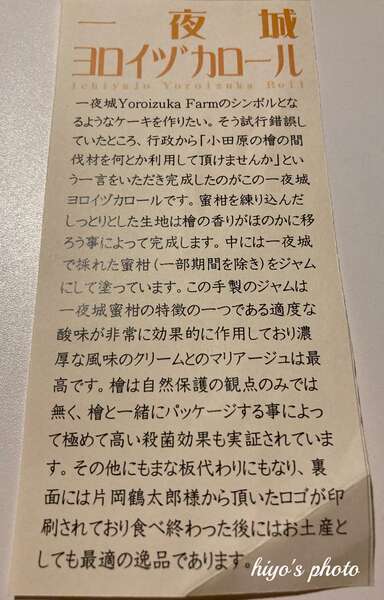 一夜城
ヨロイヅカロール
Ichiyajo Yoroizuka Roll
一夜城Yoroizuka Farmのシンボルとな
るようなケーキを作りたい。そう試行錯誤し
ていたところ、行政から「小田原の檜の間
伐材を何とか利用して頂けませんか」とい
う一言をいただき完成したのがこの一夜城
ヨロイヅカロールです。蜜柑を練り込んだ
しっとりとした生地は檜の香りがほのかに移
ろう事によって完成します。中には一夜城
で採れた蜜柑(一部期間を除き)をジャム
にして塗っています。この手製のジャムは
一夜城蜜柑の特徴の一つである適度な
酸味が非常に効果的に作用しており濃
厚な風味のクリームとのマリアージュは最
高です。檜は自然保護の観点のみでは
無く、檜と一緒にパッケージする事によっ
て極めて高い殺菌効果も実証されていま
す。その他にもまな板代わりにもなり、裏
面には片岡鶴太郎様から頂いたロゴが印
刷されており食べ終わった後にはお土産と
しても最適の逸品であります。
hiyo's photo